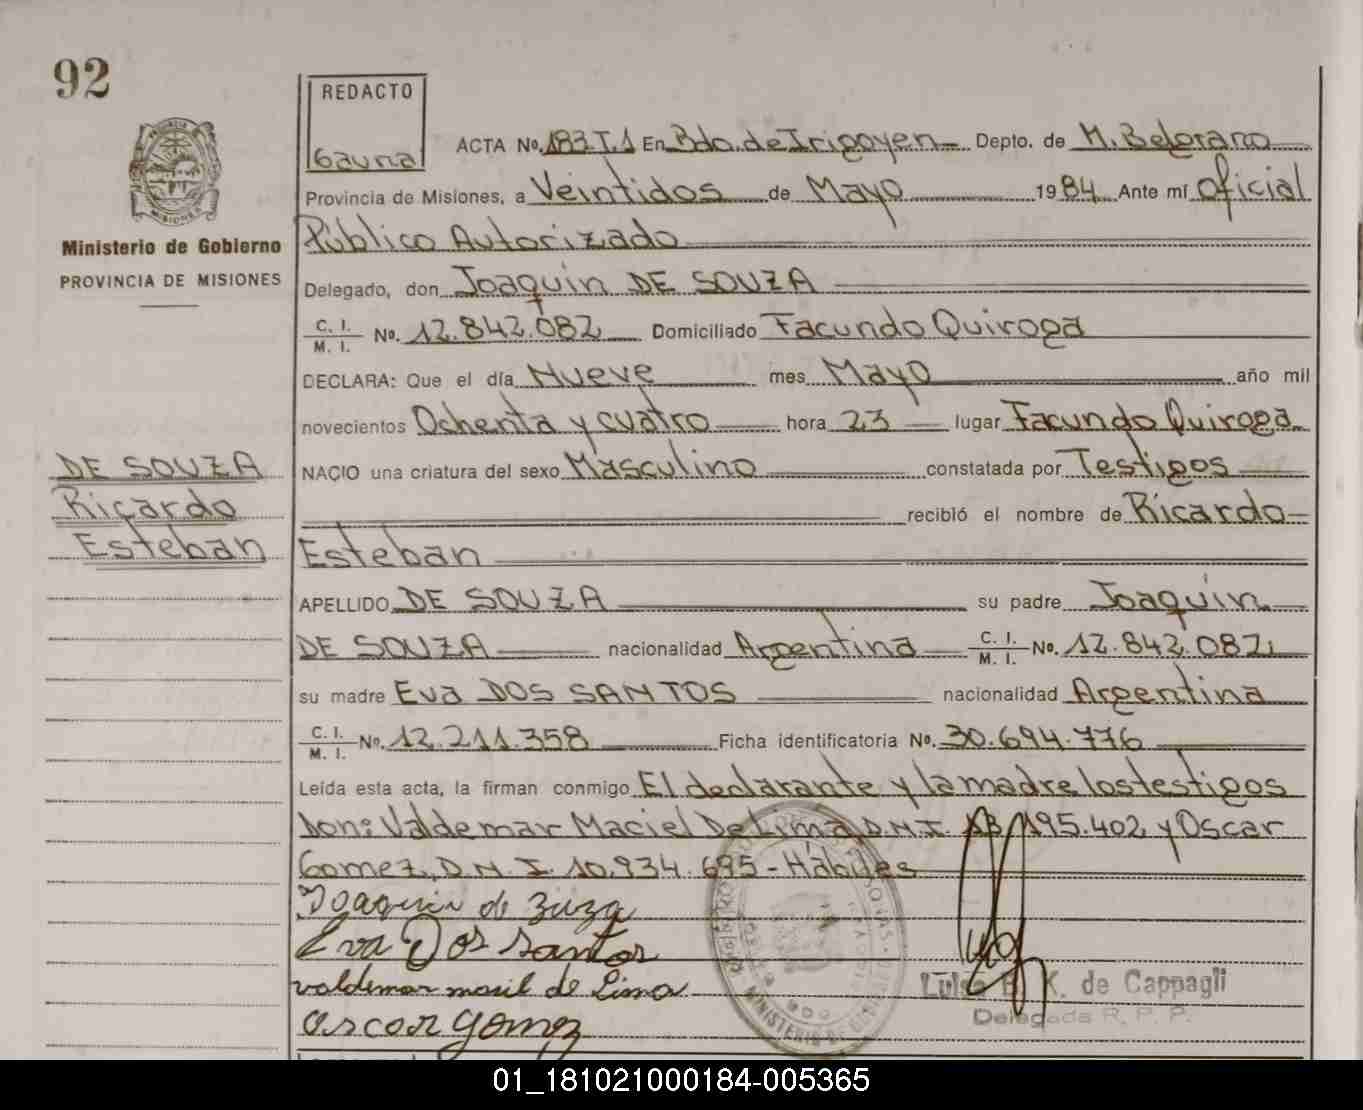 92
REDACTO
Gauna
PROVINCIA DE MISIONES
Ministerio de Gobierno
PROVINCIA DE MISIONES
ACTA No. 183 T.1 En Bdo. de Irigoyen Depto. de M. Belgrano
Provincia de Misiones, a Veintidos de Mayo 1984 Ante mí Oficial
Público Autorizado
Delegado, don Joaquin DE SOUZA
C. I. / M. I. No. 12.842.082 Domiciliado Facundo Quiroga
DECLARA: Que el día Nueve mes Mayo año mil
novecientos Ochenta y cuatro hora 23 lugar Facundo Quiroga
DE SOUZA
Ricardo
Esteban
NACIO una criatura del sexo Masculino constatada por Testigos
recibió el nombre de Ricardo
Esteban
APELLIDO DE SOUZA su padre Joaquin
DE SOUZA nacionalidad Argentina C. I. / M. I. No. 12.842.082
su madre Eva DOS SANTOS nacionalidad Argentina
C. I. / M. I. No. 12.211.358 Ficha identificatoria No. 30.694.776
Leída esta acta, la firman conmigo El declarante y la madre los testigos
Don: Valdemar Maciel De Lima D.N.I. 18.195.402 y Oscar
Gomez, D.N.I. 10.934.695 - Hábiles
Joaquin de Zuza
Eva Dos Santos
valdemar masil de Lima
oscar gomez
MINISTERIO DE GOBIERNO
K. de Cappagli
Delegada R. P. P.
01_181021000184-005365